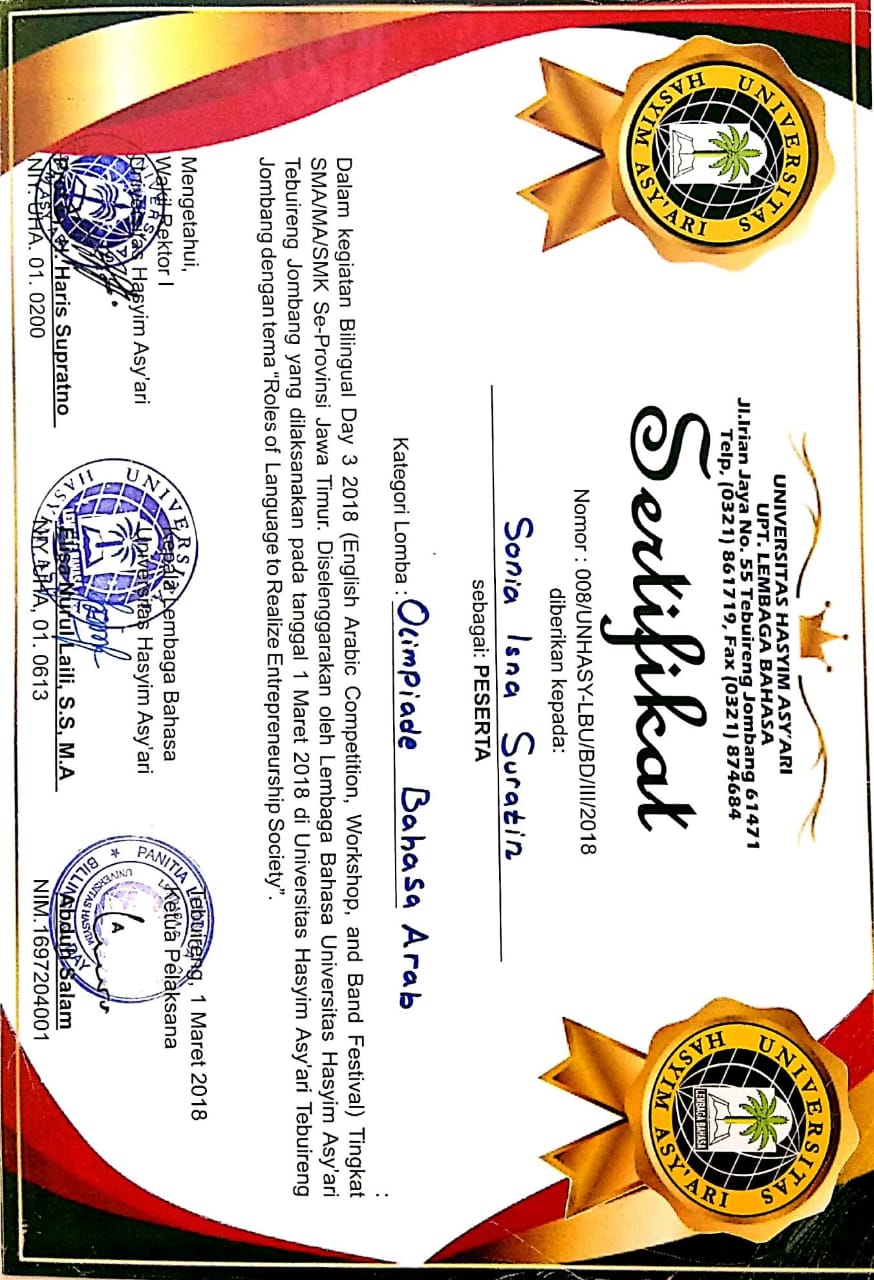 UNIVERSITAS HASYIM ASY'ARI
UNIVERSITAS HASYIM ASY'ARI
LEMBAGA BAHASA
UNIVERSITAS HASYIM ASY'ARI
UPT. LEMBAGA BAHASA
Jl.Irian Jaya No. 55 Tebuireng Jombang 61471
Telp, (0321) 861719, Fax (0321) 874684
Sertifikat
Nomor : 008/UNHASY-LBU/BD/III/2018
diberikan kepada:
Sonia Isna Suratin
sebagai: PESERTA
Kategori Lomba : Olimpiade Bahasa Arab
Dalam kegiatan Bilingual Day 3 2018 (English Arabic Competition, Workshop, and Band Festival) Tingkat
SMA/MA/SMK Se-Provinsi Jawa Timur. Diselenggarakan oleh Lembaga Bahasa Universitas Hasyim Asy'ari
Tebuireng Jombang yang dilaksanakan pada tanggal 1 Maret 2018 di Universitas Hasyim Asy'ari Tebuireng
Jombang dengan tema "Roles of Language to Realize Entrepreneurship Society".
Mengetahui,
Wakil Rektor I
Universitas Hasyim Asy'ari
Haris Supratno
NIY. UHA, 01. 0200
Kepala Lembaga Bahasa
Universitas Hasyim Asy'ari
Elisa Nurul Laili, S.S, M.A
NIY. UHA, 01. 0613
Tebuireng, 1 Maret 2018
Ketua Pelaksana
Abduh Salam
NIM.1697204001